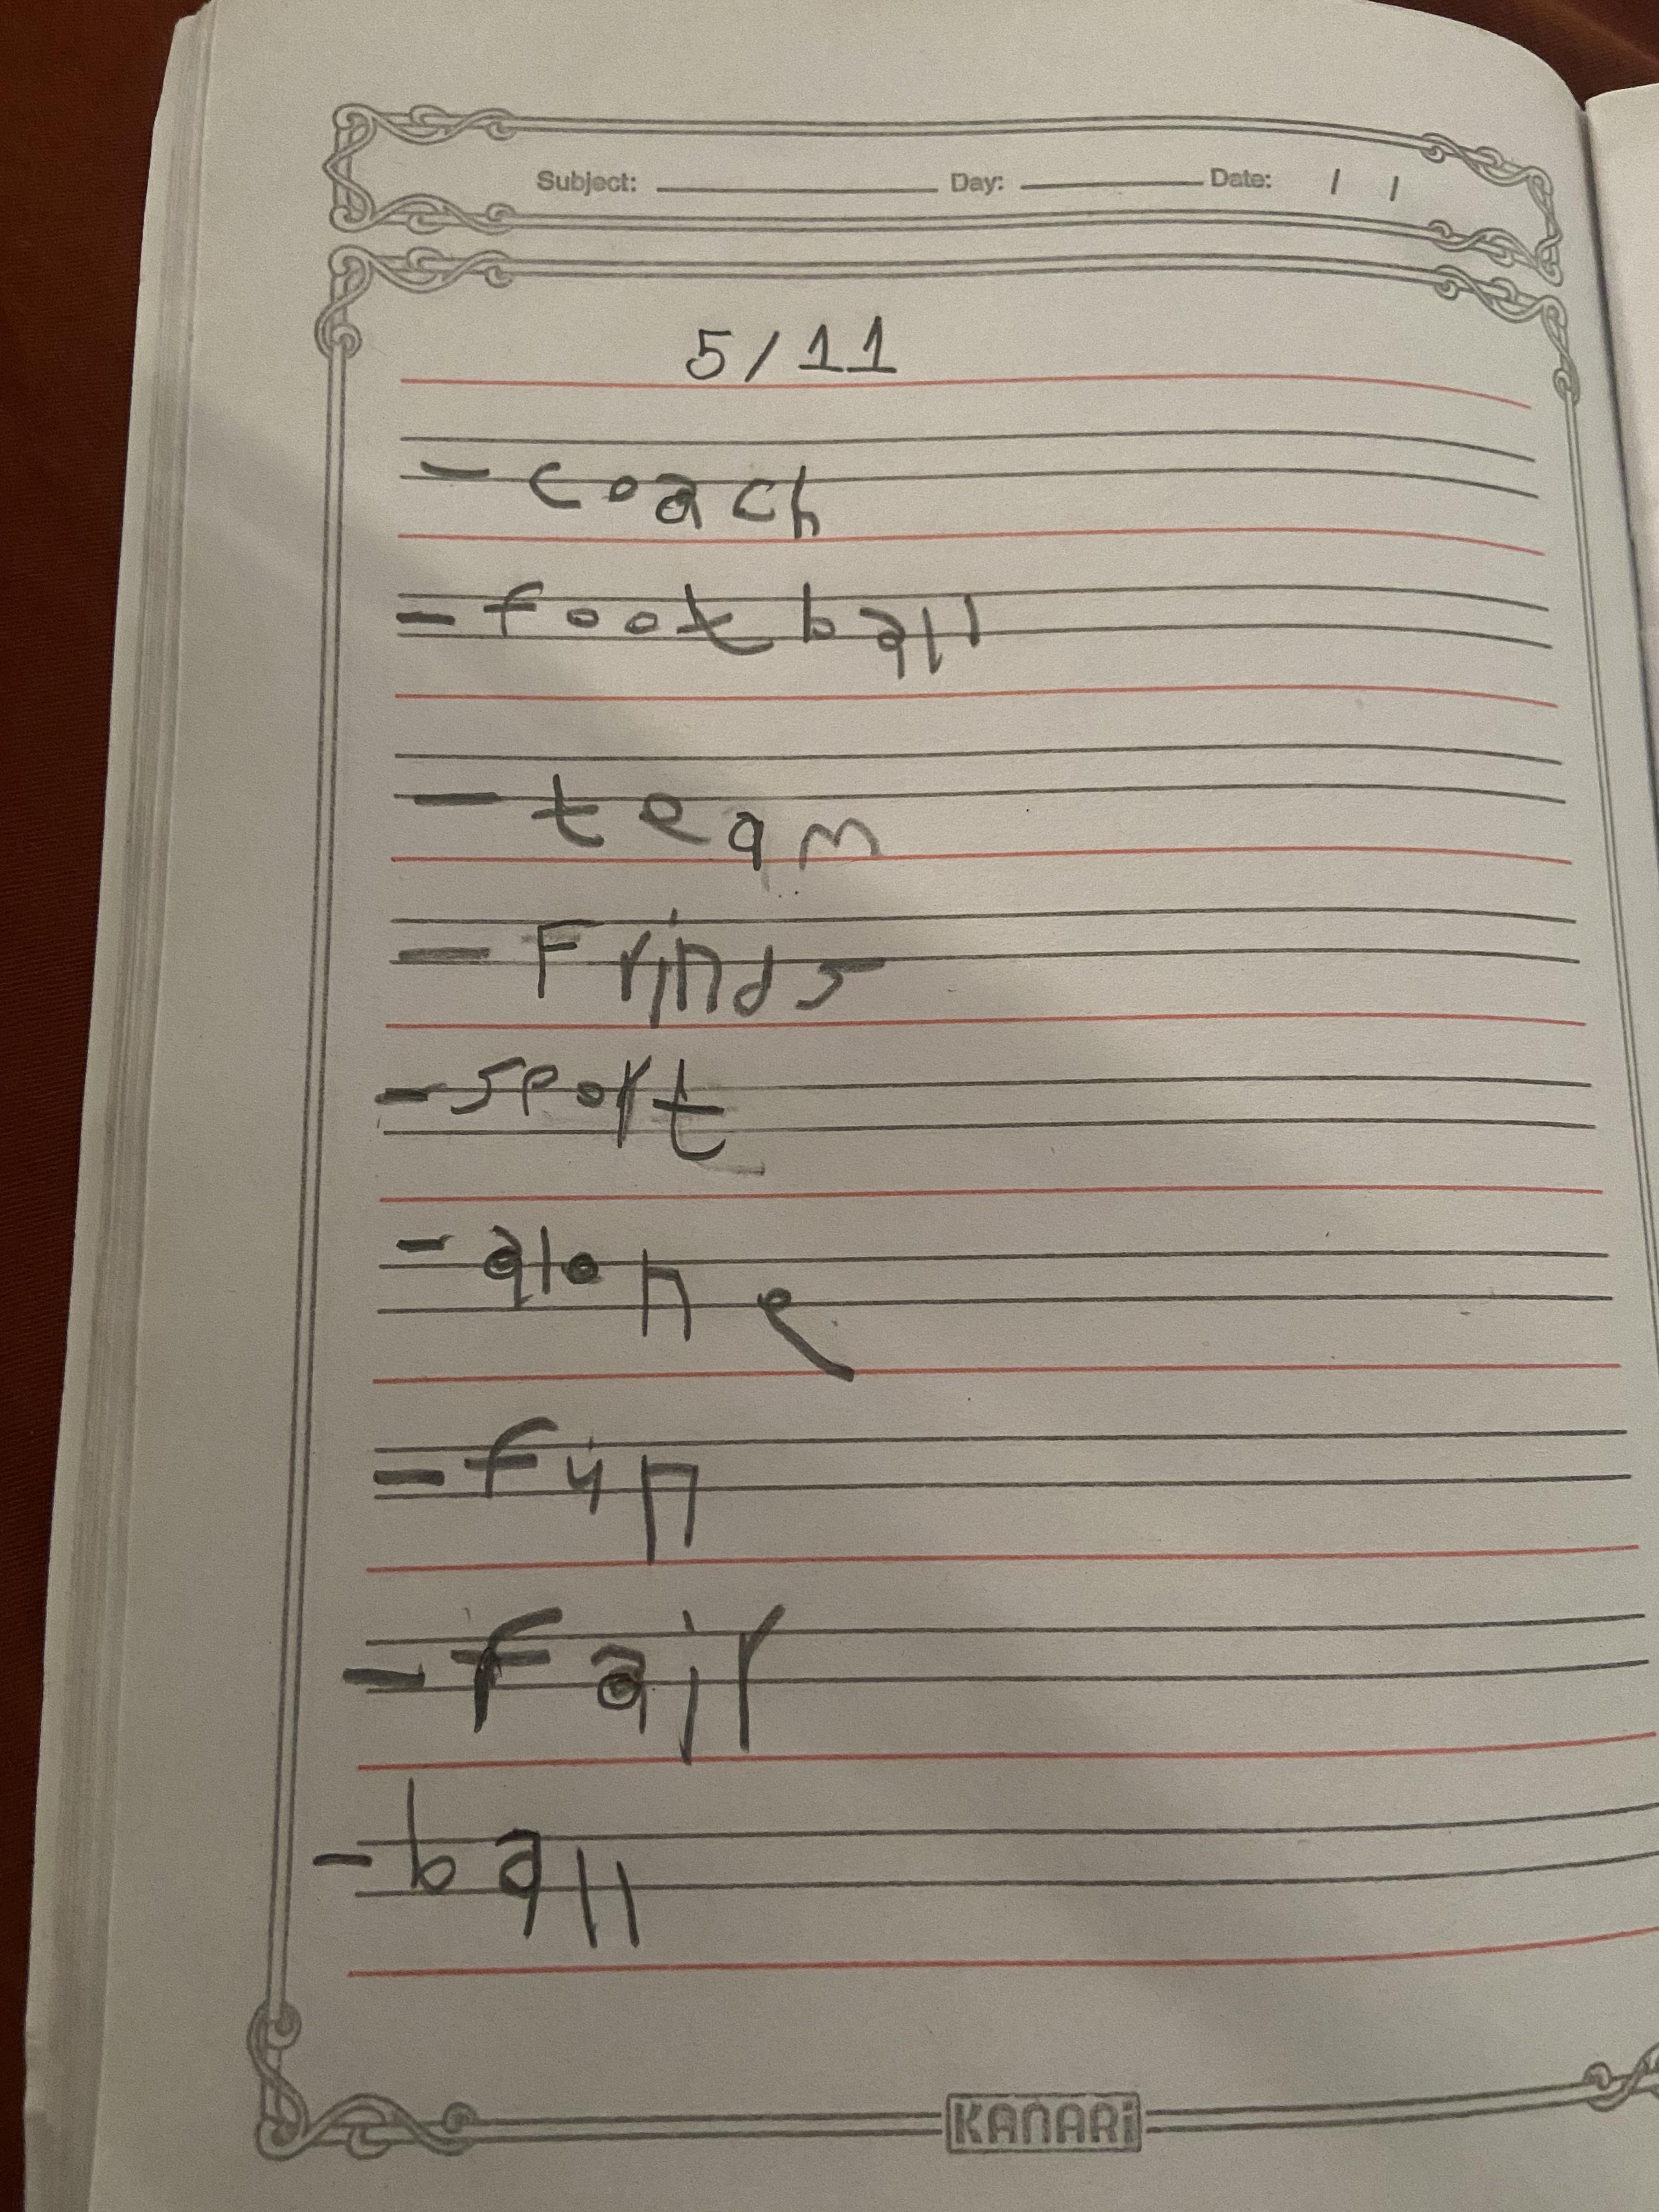 Subject: Day: Date: / /
5/11
- coach
- football
- team
- Frinds
- sport
- alone
- fun
- fair
- ball
KANARi